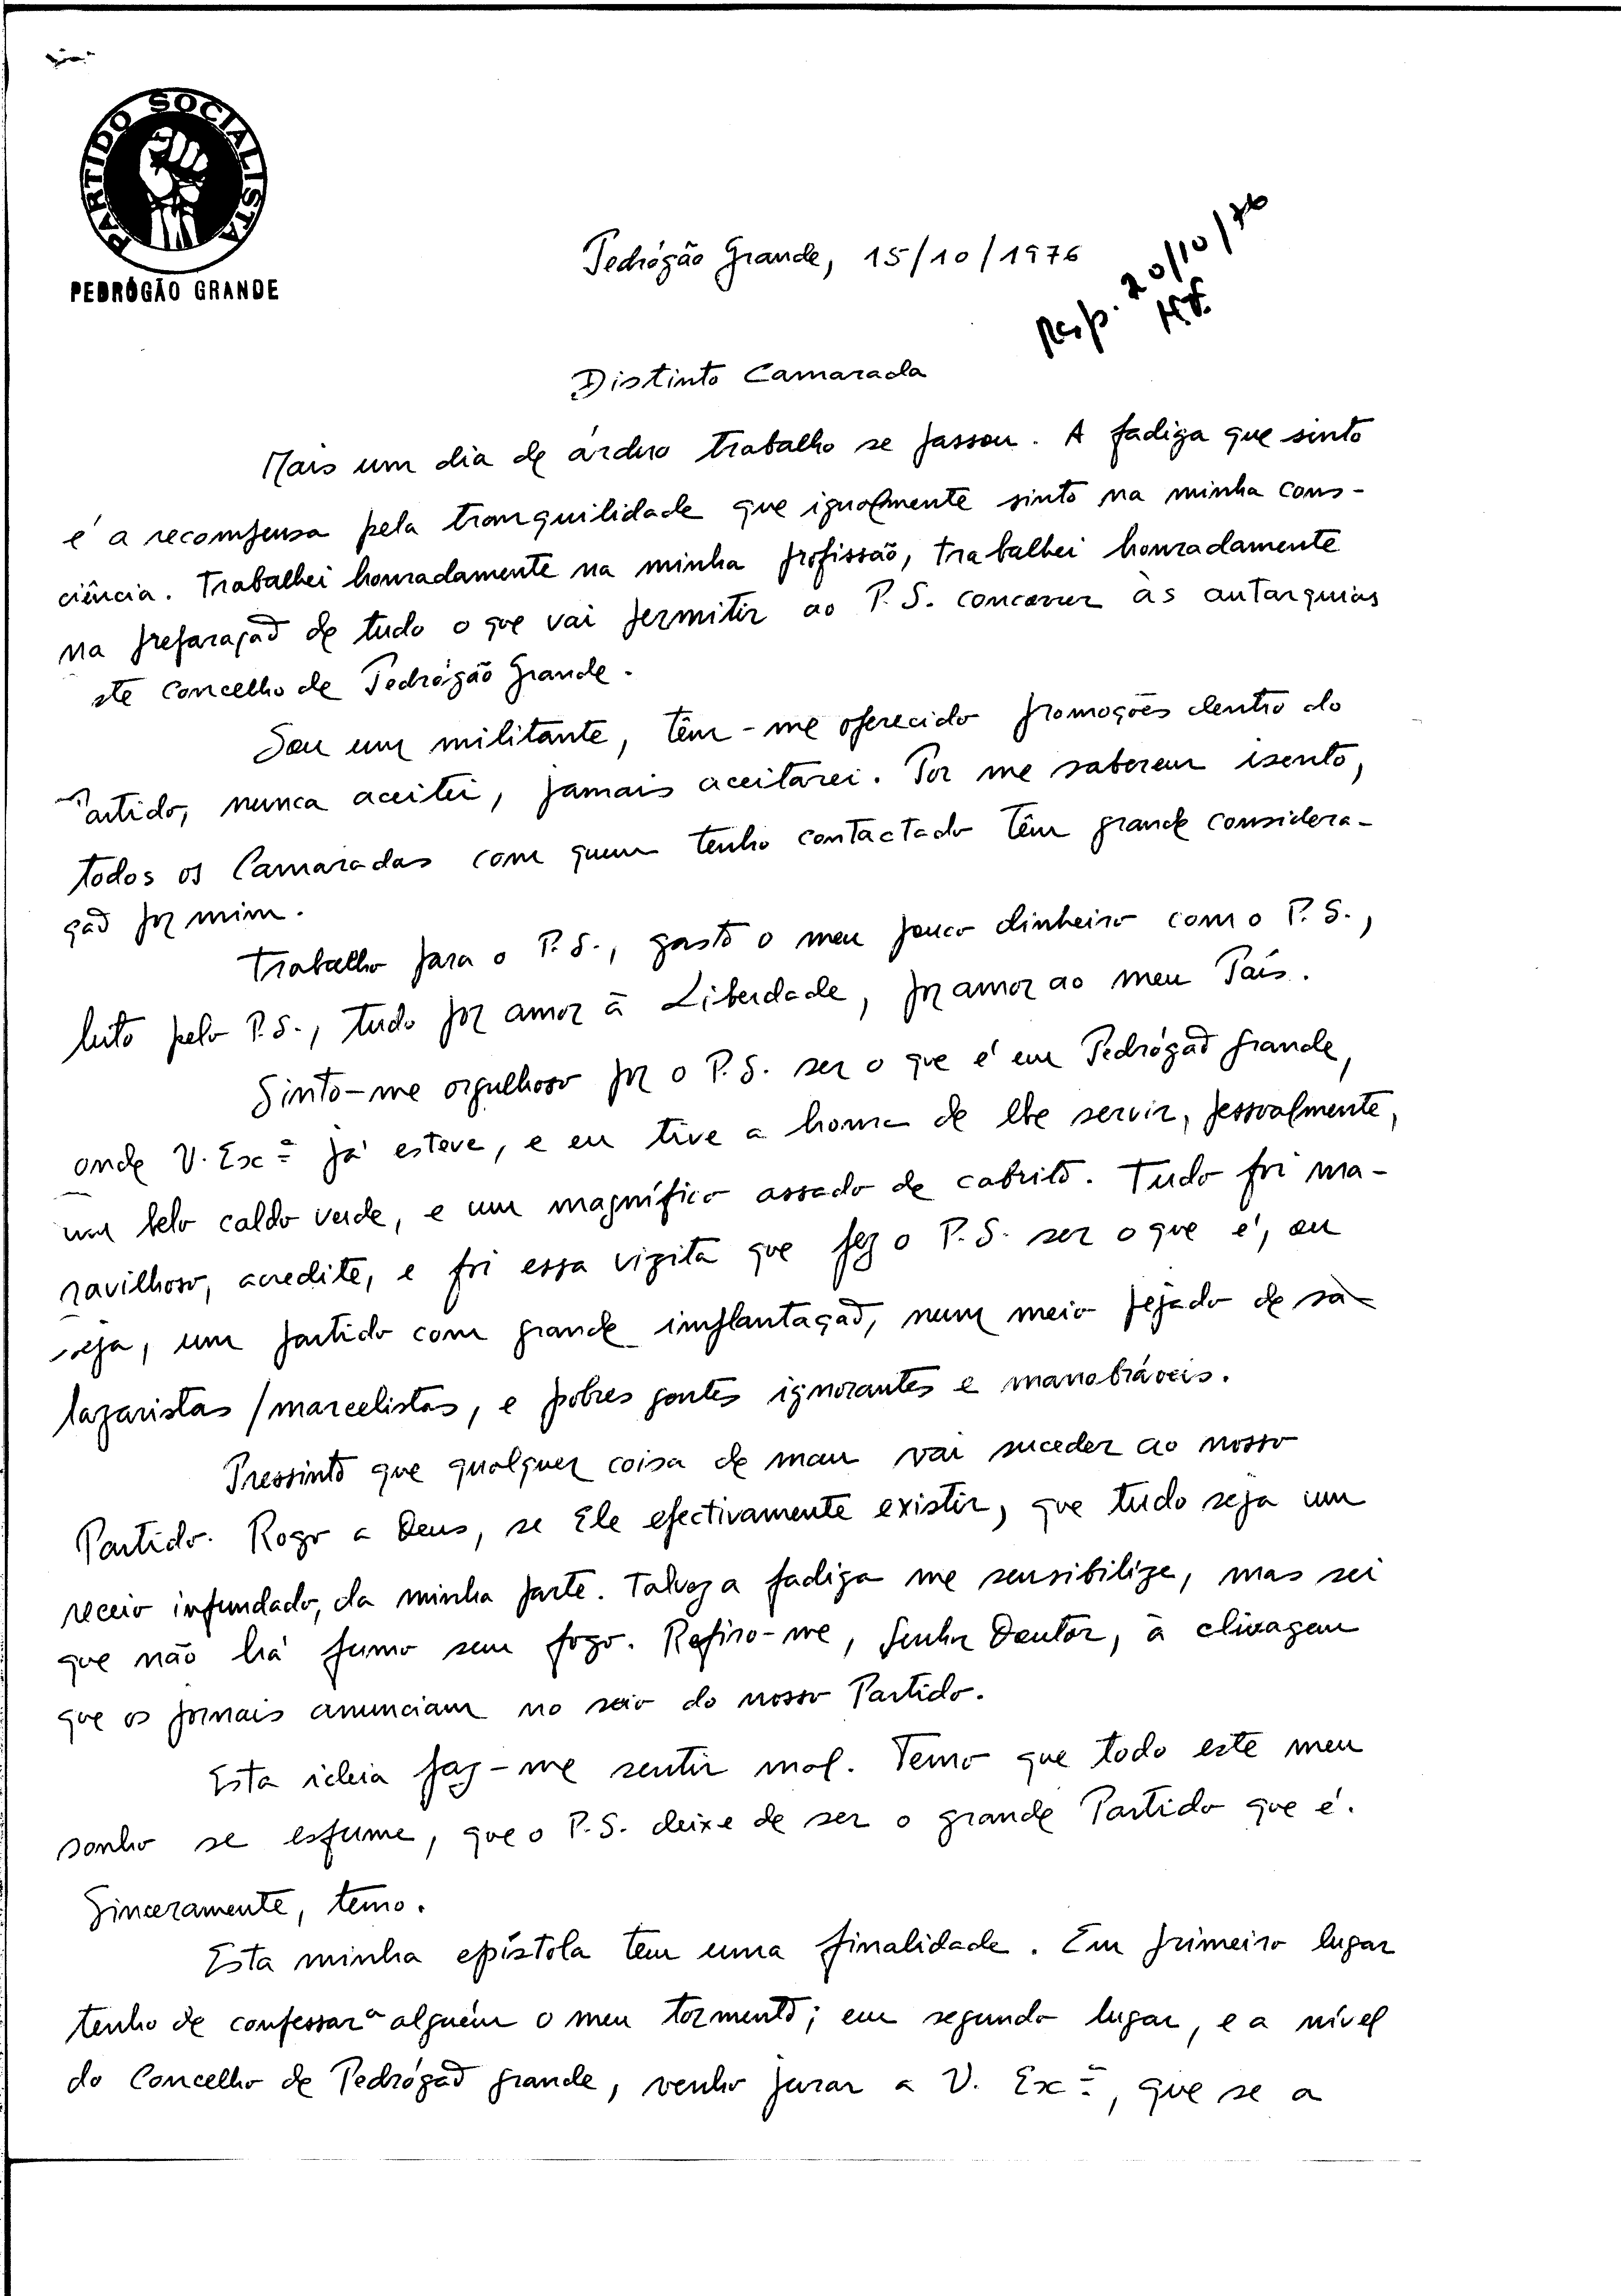 PARTIDO SOCIALISTA
PEDRÓGÃO GRANDE
Pedrógão Grande, 15/10/1976
Resp. 20/10/76
Distinto Camarada
Mais um dia de árduo trabalho se passou. A fadiga que sinto
é a recompensa pela tranquilidade que igualmente sinto na minha cons-
ciência. Trabalhei honradamente na minha profissão, trabalhei honradamente
na preparação de tudo o que vai permitir ao P.S. concorrer às autarquias
ste Concelho de Pedrógão Grande.
Sou um militante, têm-me oferecido promoções dentro do
Partido, nunca aceitei, jamais aceitarei. Por me saberem isento,
todos os Camaradas com quem tenho contactado têm grande considera-
ção por mim.
Trabalho para o P.S., gasto o meu pouco dinheiro com o P.S.,
luto pelo P.S., tudo por amor à Liberdade, por amor ao meu País.
Sinto-me orgulhoso por o P.S. ser o que é em Pedrógão Grande,
onde V. Exª já esteve, e eu tive a honra de lhe servir, pessoalmente,
um belo caldo verde, e um magnífico assado de cabrito. Tudo foi ma-
ravilhoso, acredite, e foi essa vizita que fez o P.S. ser o que é, ou
seja, um partido com grande implantação, num meio pejado de sa-
lazaristas/marcelistas, e pobres gentes ignorantes e manobráveis.
Pressinto que qualquer coisa de mau vai suceder ao nosso
Partido. Rogo a Deus, se Ele efectivamente existir, que tudo seja um
receio infundado, da minha parte. Talvez a fadiga me sensibilize, mas sei
que não há fumo sem fogo. Refiro-me, Senhor Doutor, à clivagem
que os jornais anunciam no seio do nosso Partido.
Esta ideia faz-me sentir mal. Temo que todo este meu
sonho se esfume, que o P.S. deixe de ser o grande Partido que é.
Sinceramente, temo.
Esta minha epístola tem uma finalidade. Em primeiro lugar
tenho de confessar a alguém o meu tormento; em segundo lugar, e a nível
do Concelho de Pedrógão Grande, venho jurar a V. Exª, que se a